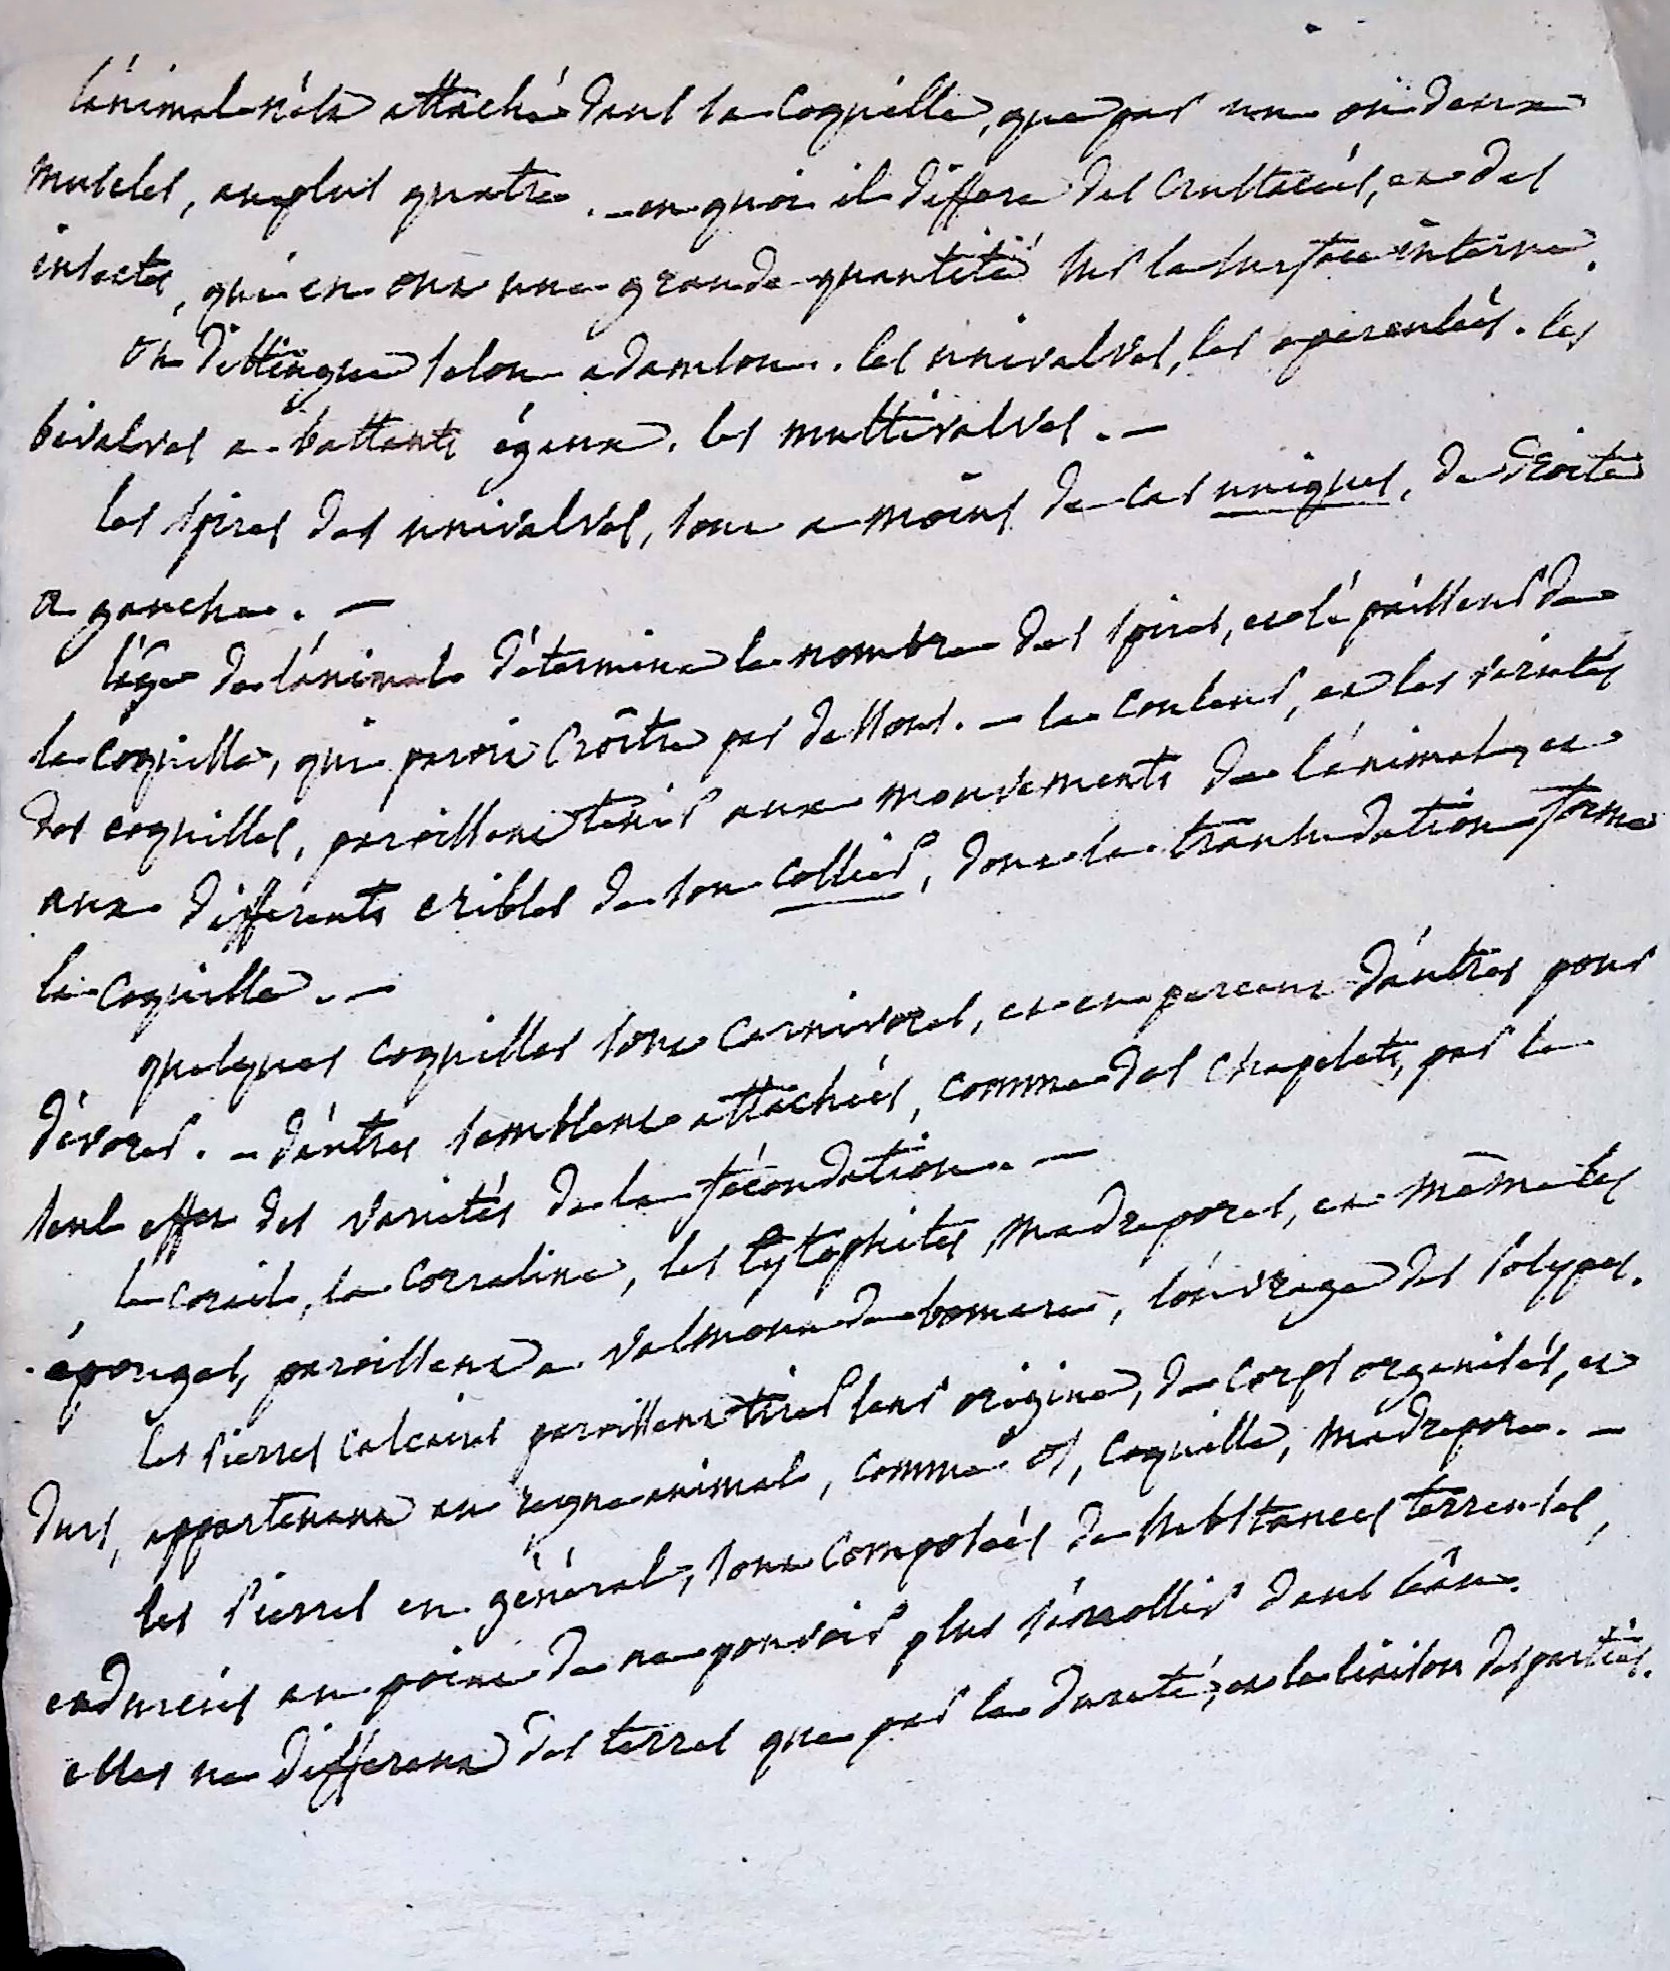 l'animal n'est attaché dans sa coquille, que par un ou deux
muscles, au plus quatre. - en quoi il differe des crustacés, et des
insectes, qui en ont une grande quantité sur la surface interne.
on distingue selon adamson. les univalves, les operculés. les
bivalves a battants égaux. les multivalves. -
les spires des univalves, sont a moins de cas uniques, de droite
a gauche. -
l'âge de l'animal détermine le nombre des spires, et l'épaisseur de
la coquille, qui paroit croître par dessous. - la couleur, et les variétés
des coquilles, paroissent tenir aux mouvements de l'animal, et
aux differents cribles de son collier, dont la transsudation forme
la coquille. -
quelques coquilles sont carnivores, et en percent d'autres pour
dévorer. - d'autres semblent attachées, comme des chapelets, par le
seul effet des variétés de la fécondation. -
le corail, la corraline, les lytophites, madrepores, et même les
éponges, paroissent a valmont de bomare, l'ouvrage des polypes.
les pierres calcaires paroissent tirer leur origine, de corps organisés, et
durs, appartenant au regne animal, comme os, coquille, madrepore. -
les pierres en général, sont composées de substances terreuses,
endurcies au point de ne pouvoir plus s'amollir dans l'eau.
elles ne different des terres que par la dureté, et la liaison des parties.